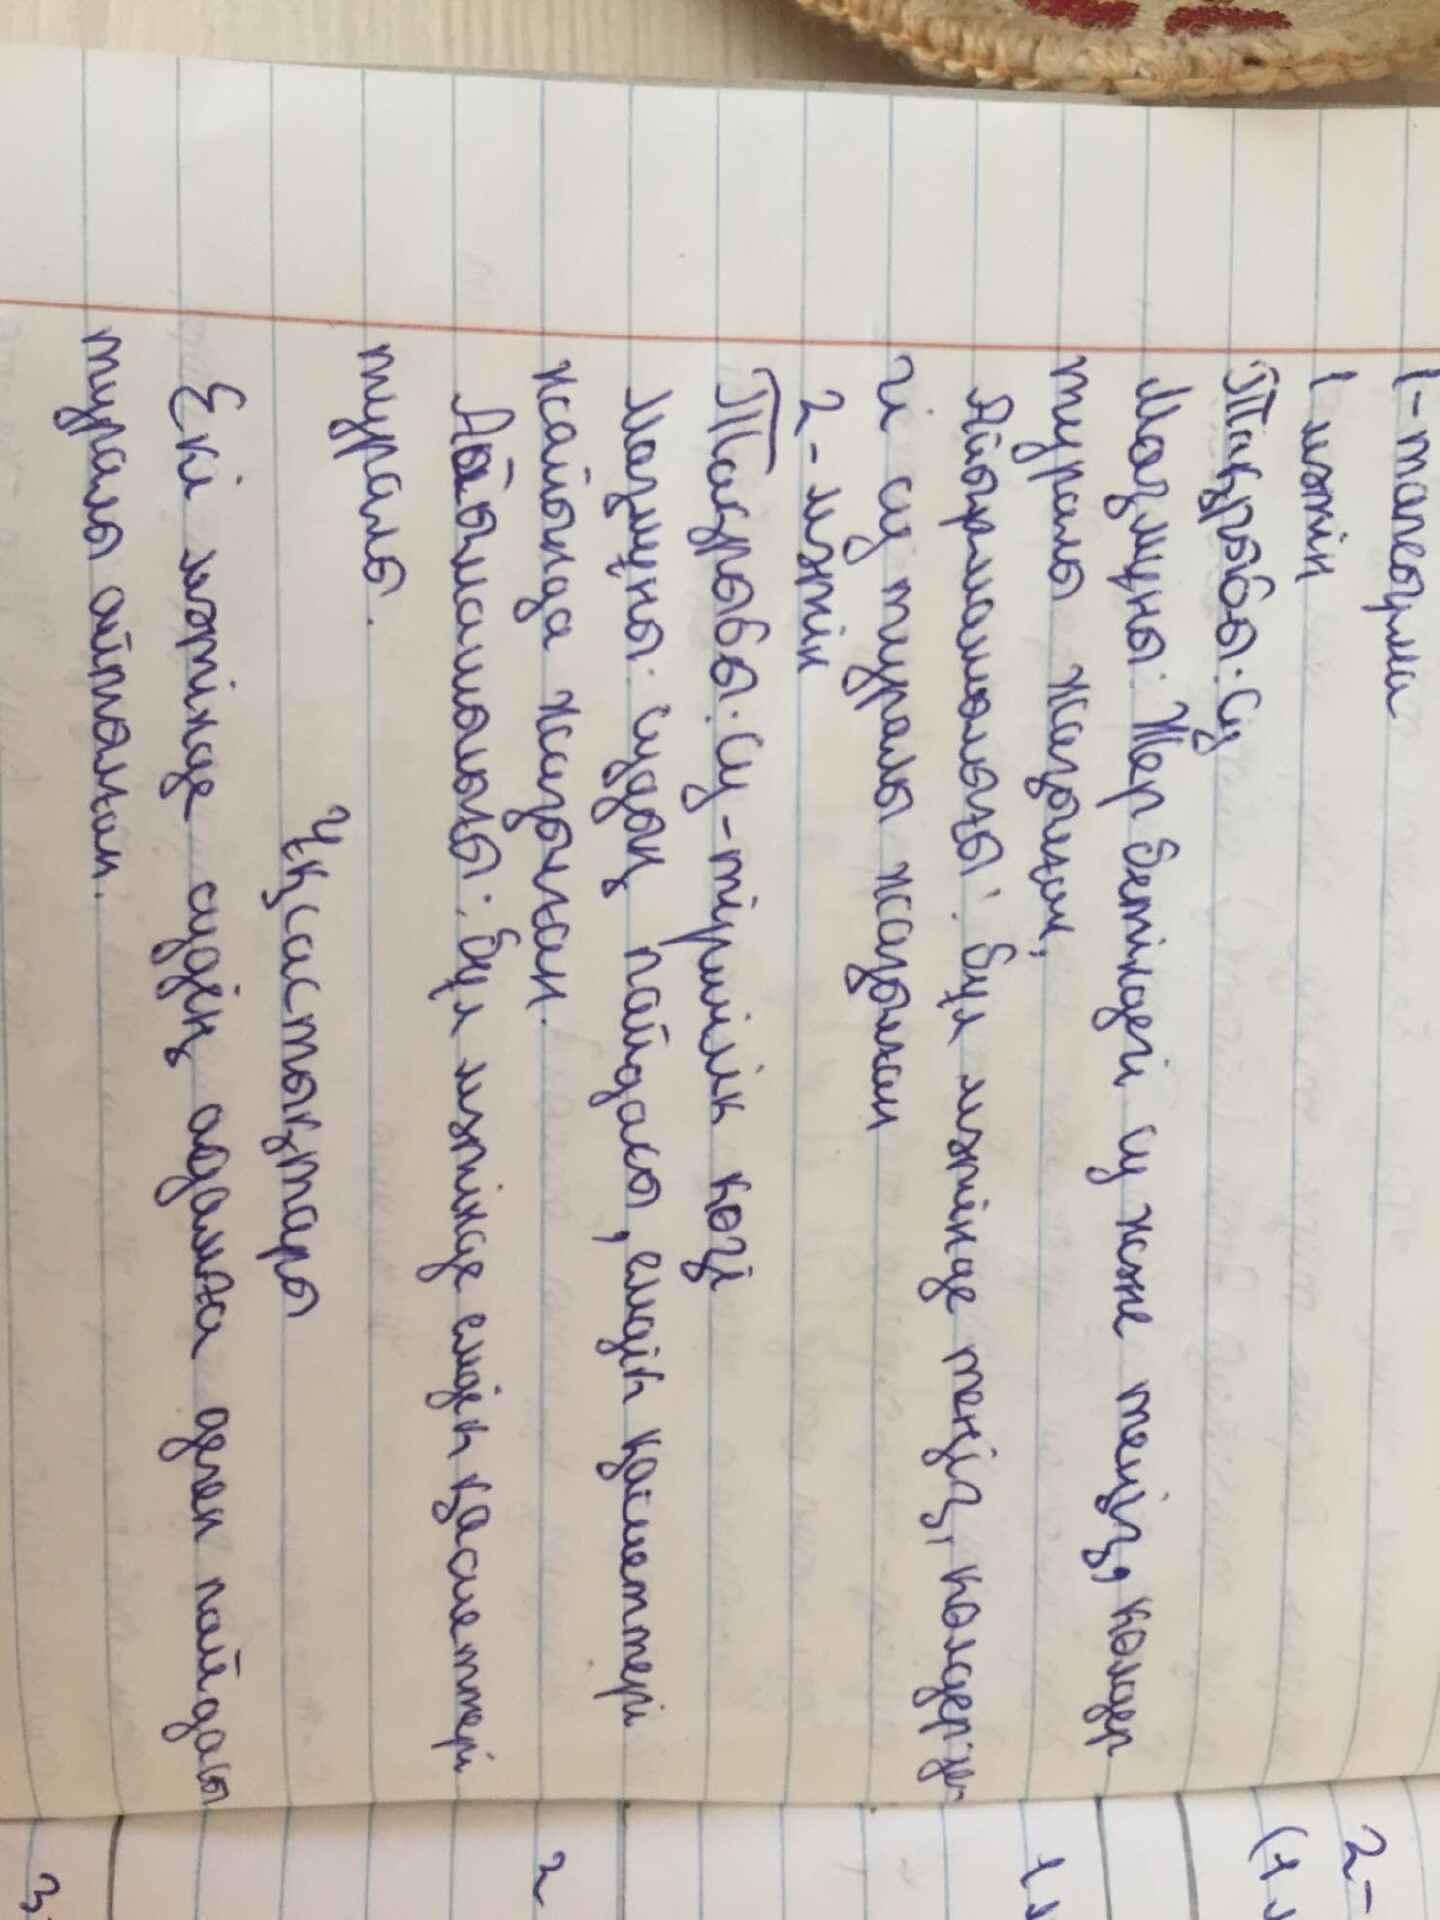 1-тапсырма
1 мәтін
Тақырыбы: Су
Мазмұны: Жер бетіндегі су және теңіз, көлдер
туралы жазылған,
Айырмашылығы: бұл мәтінде теңіз, көлдерде-
гі су туралы жазылған
2-мәтін
Тақырыбы: Су-тіршілік көзі
Мазмұны: судың пайдасы, емдік қасиеттері
жайында жазылған.
Айырмашылығы: бұл мәтінде емдік қасиеттері
туралы.
Ұқсастықтары
Екі мәтінде судың адамға деген пайдасы
туралы айтылған.
2-
(1
1
2
3.